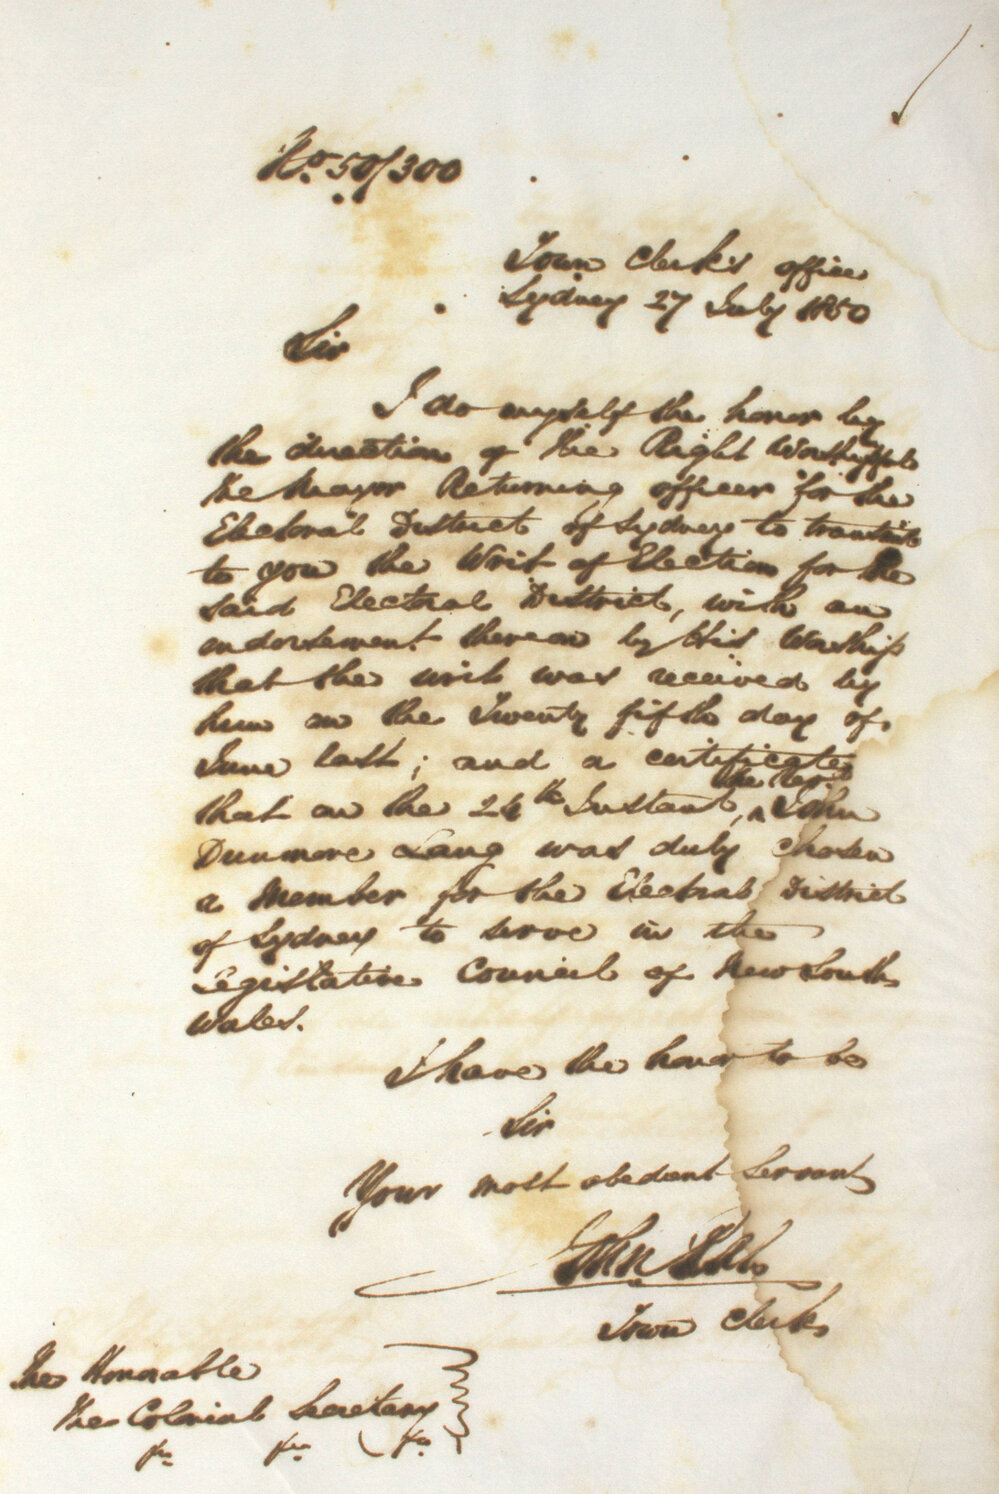 No. 50/300
Town Clerk's office
Sydney 27 July 1850
Sir
I do myself the honor by
the direction of the Right Worshipful
the Mayor Returning officer for the
Electoral District of Sydney to transmit
to you the Writ of Election for the
said Electoral District, with an
endorsement thereon by His Worship
that the writ was received by
him on the Twenty fifth day of
June last; and a certificate
that on the 24th Instant, ^ the Revd John
Dunmore Lang was duly chosen
a Member for the Electoral District
of Sydney to serve in the
Legislative Council of New South
Wales.
I have the honor to be
Sir
Your most obedient Servant
John
Town Clerk
The Honorable
The Colonial Secretary
&c. &c. &c.